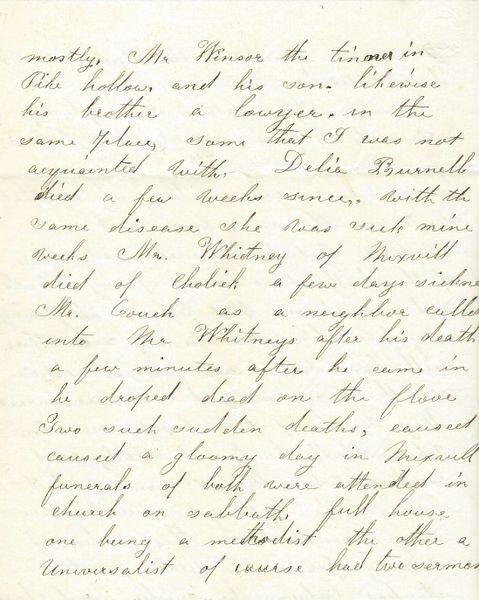 mostly, Mr Winsor the tinner in
Pike hollow, and his son. likewise
his brother a lawyer. in the
same place, some that I was not
acquainted with. Delia Burnell
died a few weeks since,. with th
same disease she was sick nine
weeks Mr. Whitney of Mixvill
died of Cholick a few days sickne
Mr. Couch as a neighbor called
into Mr Whitneys after his death
a few minutes after he came in
he droped dead on the flove
Two such sudden deaths, caused
caused a gloomy day in Mixvill
funerals of both were attended in
church on sabbath, full house
one being a methodist the other a
Universalist of course had two sermon